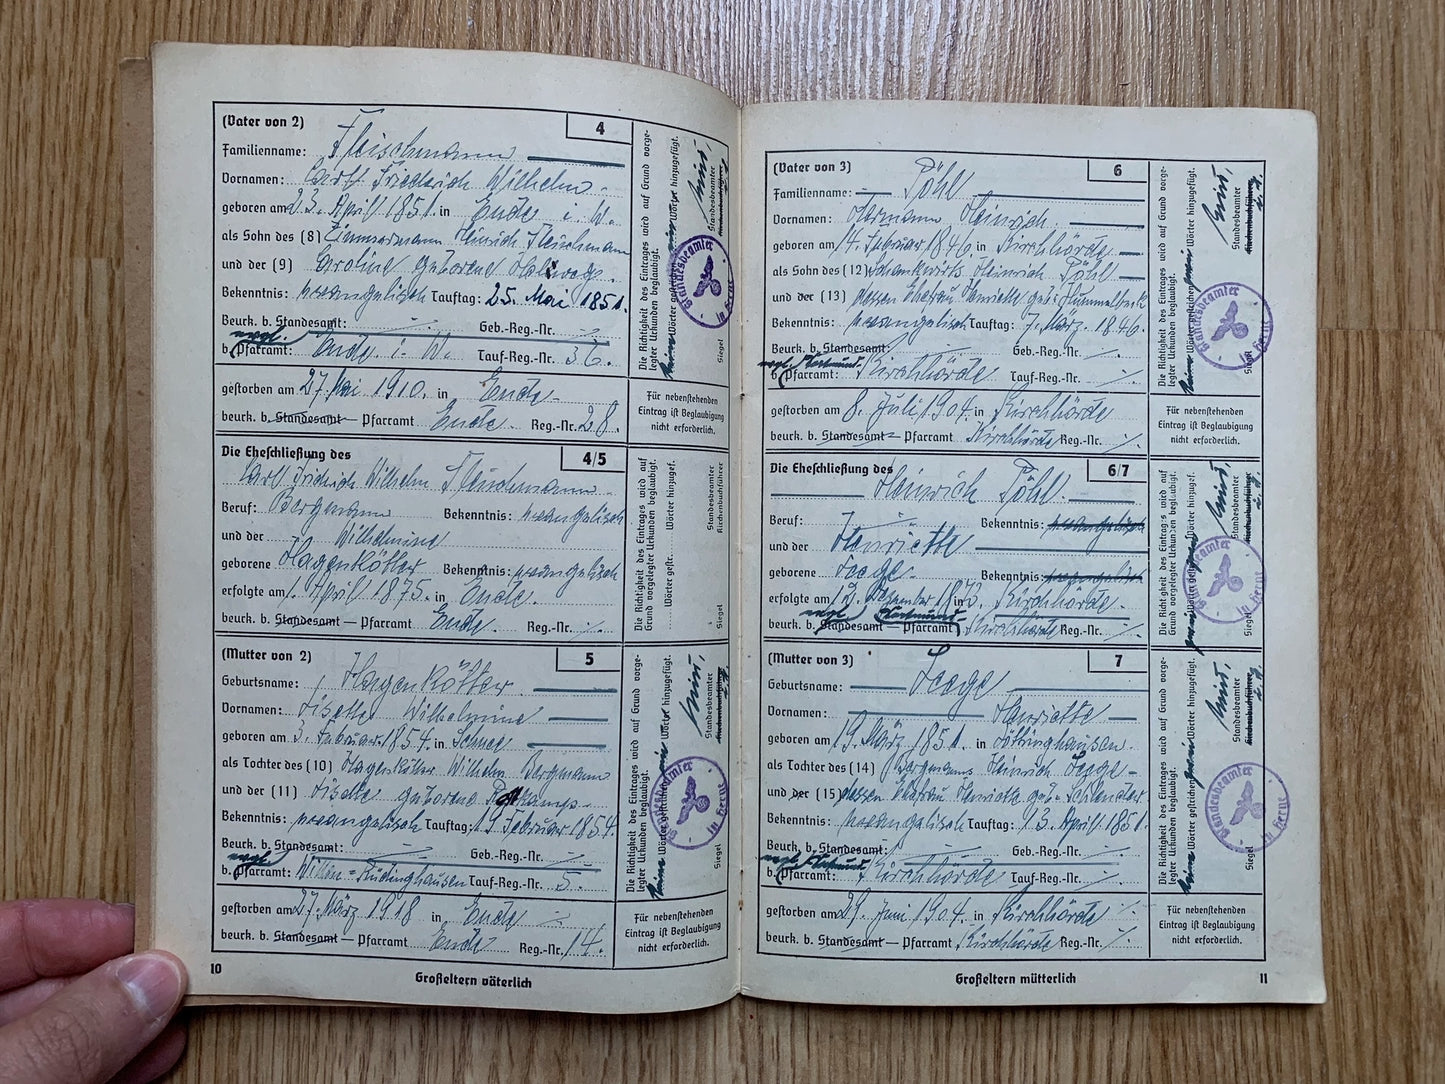 (Vater von 2) 4
Familienname: Fleischmann
Vornamen: Carl Friedrich Wilhelm
geboren am 23. April 1851. in Ende i. W.
als Sohn des (8) Zimmermann Heinrich Fleischmann
und der (9) Caroline geborene
Bekenntnis: evangelisch Tauftag: 25. Mai 1851.
Beurk. b. Standesamt: Geb.-Reg.-Nr.
evgl.
b. Pfarramt: Ende i. W. Tauf-Reg.-Nr. 36.
gestorben am 27. Mai 1910. in Ende
beurk. b. Standesamt — Pfarramt Ende Reg.-Nr. 28.
Die Richtigkeit des Eintrages wird auf Grund vorge-
legter Urkunden beglaubigt.
keine Wörter gestrichen, kein Wörter hinzugefügt.
Standesbeamter
Kirchenbuchführer
Siegel
Standesbeamter in Herne
Für nebenstehenden
Eintrag ist Beglaubigung
nicht erforderlich.
Die Eheschließung des 4/5
Carl Friedrich Wilhelm Fleischmann
Beruf: Bergmann Bekenntnis: evangelisch
und der Wilhelmine
geborene Hagenkötter Bekenntnis: evangelisch
erfolgte am 1. April 1875. in Ende.
beurk. b. Standesamt — Pfarramt Ende. Reg.-Nr.
Die Richtigkeit des Eintrages wird auf
Grund vorgelegter Urkunden beglaubigt.
Wörter gestr. Wörter hinzugef.
Standesbeamter
Kirchenbuchführer
Siegel
(Mutter von 2) 5
Geburtsname: Hagenkötter
Vornamen: Lisette Wilhelmine
geboren am 3. Februar 1854. in Schnee
als Tochter des (10) Hagenkötter Wilhelm Bergmann
und der (11) Lisette geborene
Bekenntnis: evangelisch Tauftag: 19. Februar 1854.
Beurk. b. Standesamt: Geb.-Reg.-Nr.
evgl.
b. Pfarramt: Witten-Rüdinghausen Tauf-Reg.-Nr. 5.
gestorben am 27. März 1918 in Ende
beurk. b. Standesamt — Pfarramt Ende Reg.-Nr. 14.
Die Richtigkeit des Eintrages wird auf Grund vorge-
legter Urkunden beglaubigt.
keine Wörter gestrichen, kein Wörter hinzugefügt.
Standesbeamter
Kirchenbuchführer
Siegel
Standesbeamter in Herne
Für nebenstehenden
Eintrag ist Beglaubigung
nicht erforderlich.
10 Großeltern väterlich
(Vater von 3) 6
Familienname: Pöhl
Vornamen: Hermann Heinrich
geboren am 14. Februar 1846. in Kirchhörde
als Sohn des (12) Schankwirts Heinrich Pöhl
und der (13) dessen Ehefrau Henriette geb. Hummelbeck
Bekenntnis: evangelisch Tauftag: 7. März 1846.
Beurk. b. Standesamt: Geb.-Reg.-Nr.
evgl. Dortmund-
b. Pfarramt: Kirchhörde Tauf-Reg.-Nr.
gestorben am 8. Juli 1904. in Kirchhörde
beurk. b. Standesamt — Pfarramt Kirchhörde Reg.-Nr.
Die Richtigkeit des Eintrages wird auf Grund vorge-
legter Urkunden beglaubigt.
keine Wörter gestrichen, Wörter hinzugefügt.
Standesbeamter
Kirchenbuchführer
Siegel
Standesbeamter in Herne
Für nebenstehenden
Eintrag ist Beglaubigung
nicht erforderlich.
Die Eheschließung des 6/7
Heinrich Pöhl.
Beruf: Bekenntnis: evangelisch
und der Henriette
geborene Feege Bekenntnis: evangelisch
erfolgte am Dezember in Kirchhörde
evgl. Dortmund-
beurk. b. Standesamt — Pfarramt Kirchhörde Reg.-Nr.
Die Richtigkeit des Eintrages wird auf
Grund vorgelegter Urkunden beglaubigt
Wörter gestr. Wörter hinzugef.
Standesbeamter
Kirchenbuchführer
Siegel
Standesbeamter in Herne
(Mutter von 3) 7
Geburtsname: Feege
Vornamen: Henriette
geboren am 19. März 1851. in Löttringhausen
als Tochter des (14) Bergmanns Heinrich Feege
und der (15) dessen Ehefrau Henriette geb. Schlender
Bekenntnis: evangelisch Tauftag: 13. April 1851.
Beurk. b. Standesamt: Geb.-Reg.-Nr.
evgl. Dortmund-
b. Pfarramt: Kirchhörde Tauf-Reg.-Nr.
gestorben am 29. Juni 1904. in Kirchhörde
beurk. b. Standesamt — Pfarramt Kirchhörde Reg.-Nr.
Die Richtigkeit des Eintrages wird auf Grund vorge-
legter Urkunden beglaubigt.
keine Wörter gestrichen, Wörter hinzugefügt.
Standesbeamter
Kirchenbuchführer
Siegel
Standesbeamter in Herne
Für nebenstehenden
Eintrag ist Beglaubigung
nicht erforderlich.
Großeltern mütterlich 11